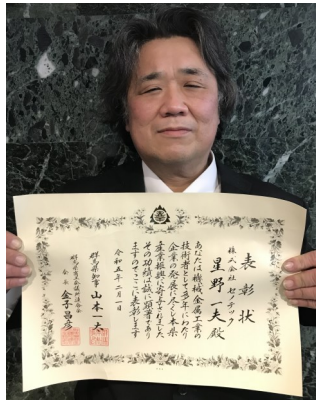 表彰状
株式会社 ゼノテック
星野一夫殿
あなたは機械金属工業の
技術者として多年にわたり
企業の発展に尽くし本県
産業振興に寄与されました
その功績は誠に顕著であり
ますのでここに表彰します
令和五年二月一日
群馬県知事 山本一太
会長 金子昌彦